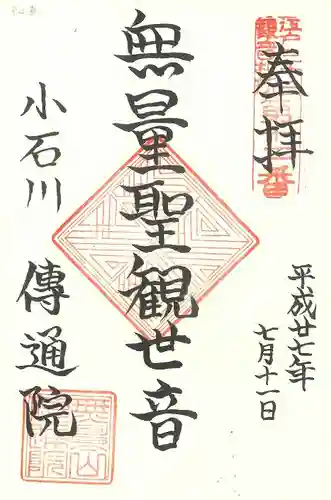 奉拝
平成廿七年
七月十一日
無量聖観世音
小石川
傳通院